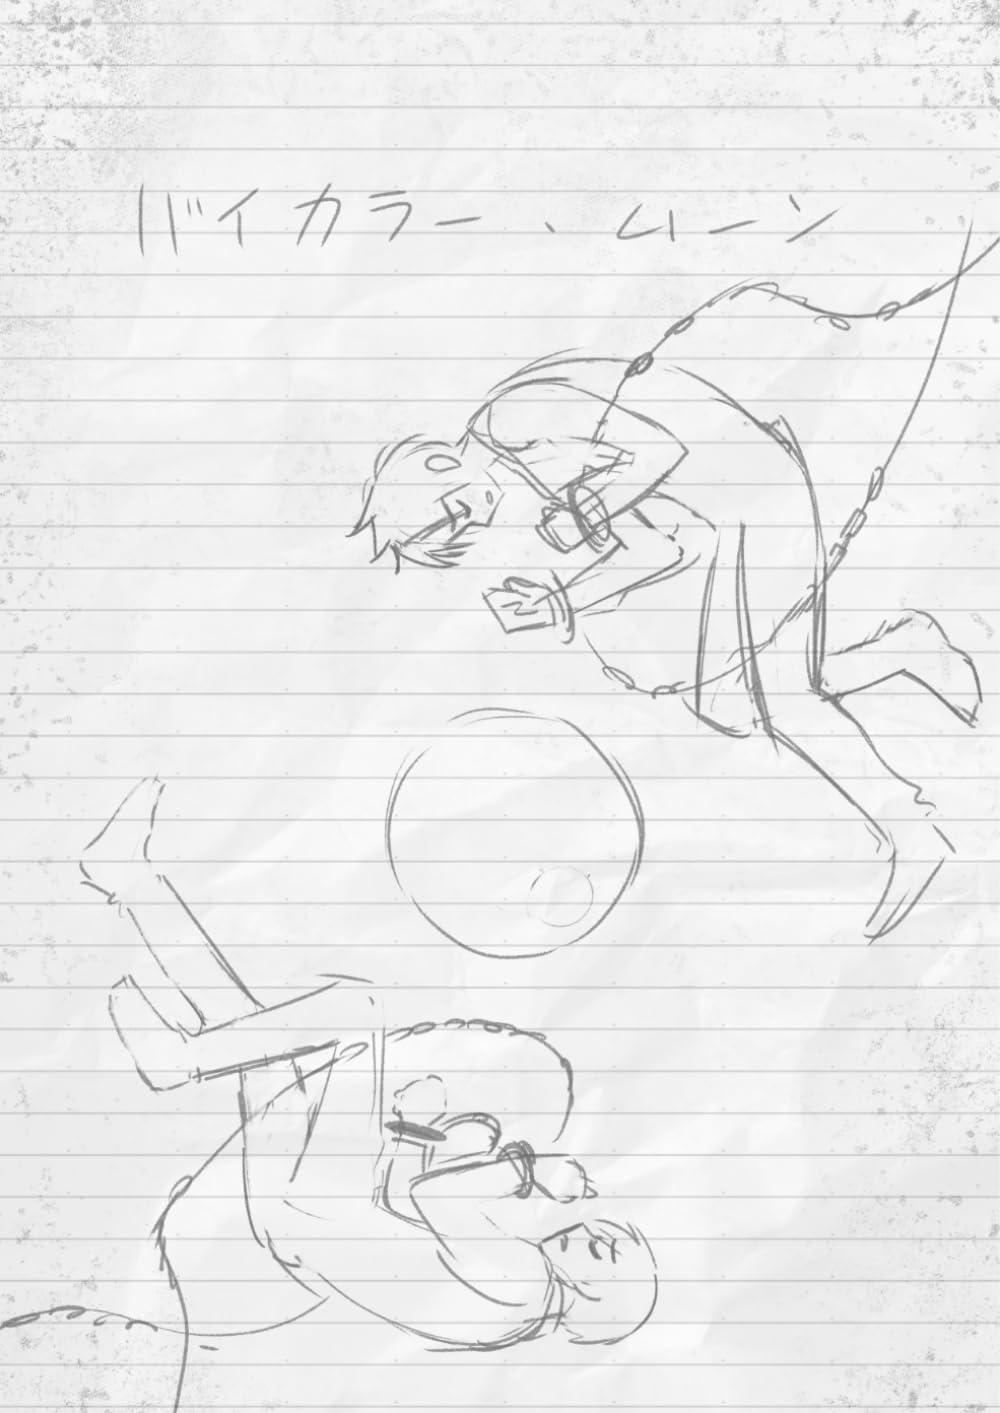 バイカラー、ムーン